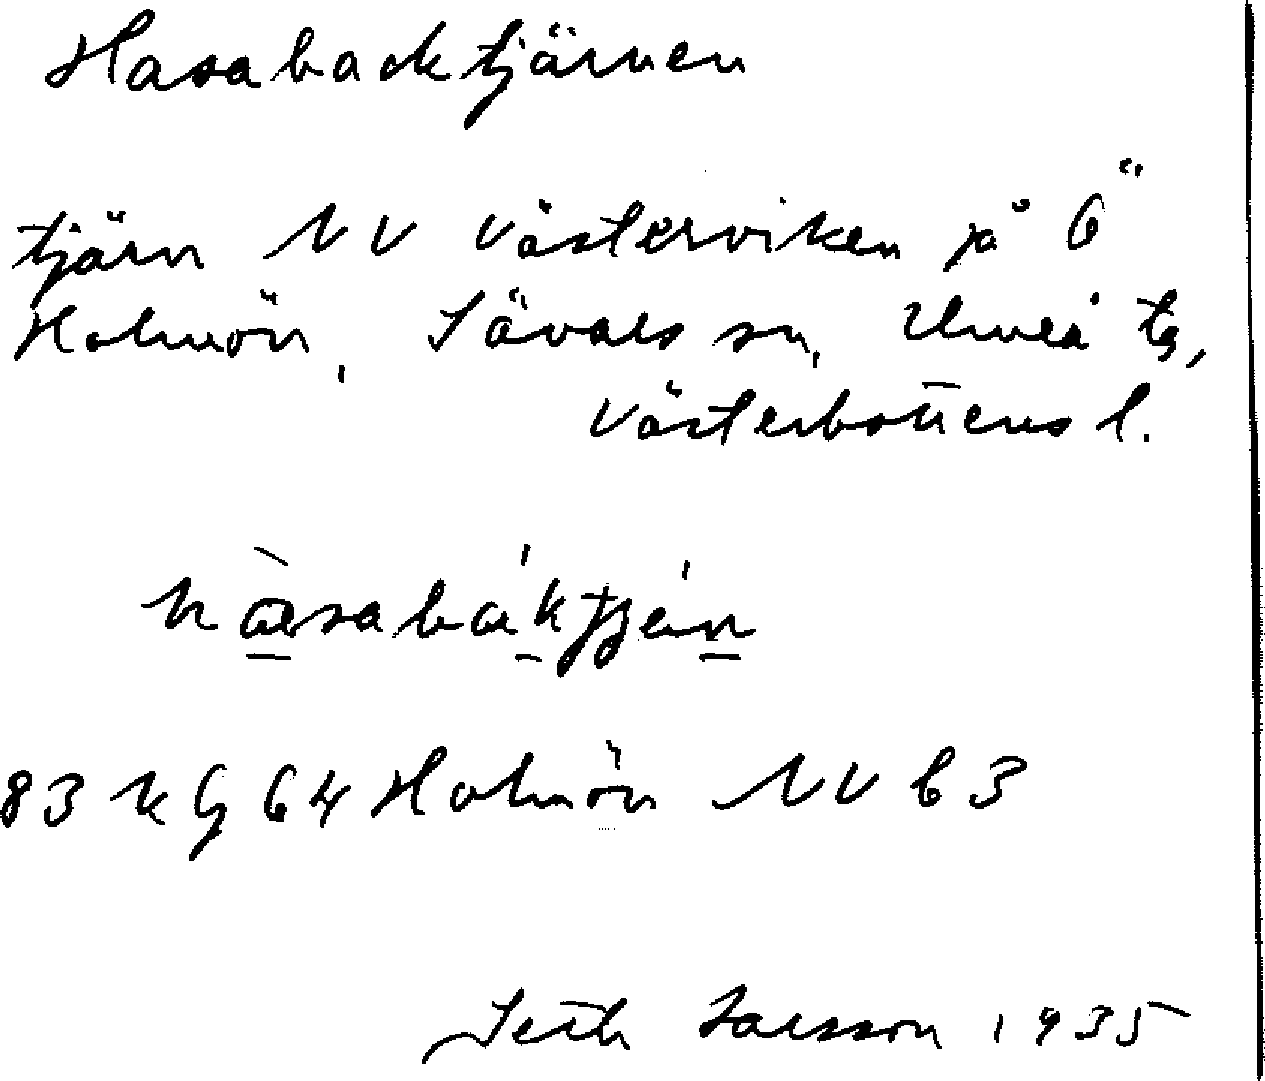 Hasabacktjärnen
tjärn NV Västerviken på Ö
Holmön, Sävars sn, Umeå tg,
Västerbottens l.
hàsabáktjǽn
83 k G 64 Holmön NV b 3
Seth Larsson 1935